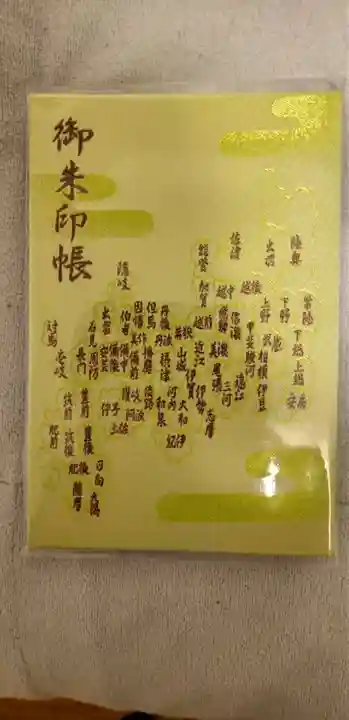 御朱印帳
常陸
陸奥
下野
下総 上総
安房
出羽
上野
武蔵
相模 伊豆
越後
甲斐 駿河
佐渡
越中
信濃
遠江
飛騨
三河
能登
加賀
越前
美濃
尾張
志摩
近江
伊勢
伊賀
若狭
山城
大和
丹後
丹波
摂津
河内
和泉
紀伊
但馬
播磨
淡路
因幡
美作
備前
阿波
隠岐
伯耆
備中
讃岐
土佐
出雲
備後
伊予
石見
安芸
長門
周防
対馬
壱岐
筑前
豊前
豊後
筑後
肥前
肥後
日向
大隅
薩摩